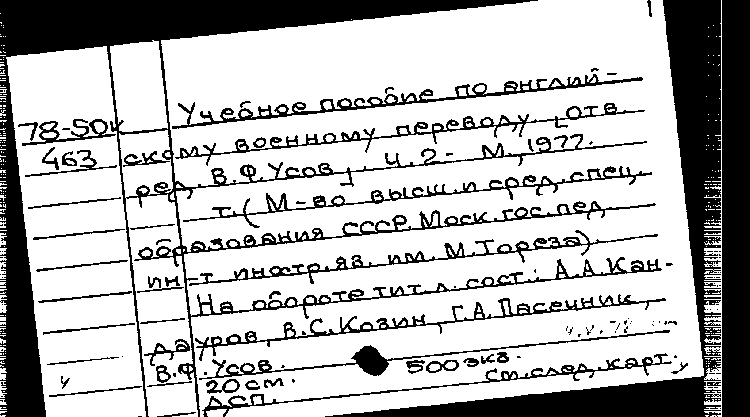 1
Учебное пособие по англий-
78-50к
скому военному переводу. [Отв.
463
ред. В.Ф. Усов]. Ч. 2- М., 1977.
т. (М-во высш. и сред. спец.
образования СССР. Моск. гос. пед.
ин-т иностр. яз. им. М. Тореза).
На обороте тит. л. сост.: А.А. Кан-
дауров, В.С. Козин, Г.А. Пасечник,
В.Ф. Усов.
20 см. 500 экз.
ДСП. См. след. карт.